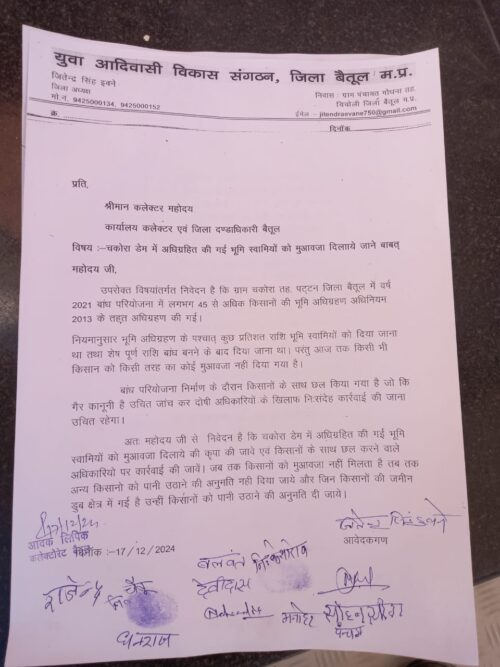 युवा आदिवासी विकास संगठन, जिला बैतूल म.प्र.
जितेन्द्र सिंह इवने
जिला अध्यक्ष
मो.न. 9425000134, 9425000152
निवास : ग्राम पंचायत गोधना तह.
चिचोली जिला बैतूल म.प्र.
ईमेल :- jitendrasvane750@gmail.com
क्र.
दिनाँक
प्रति,
श्रीमान कलेक्टर महोदय
कार्यालय कलेक्टर एवं जिला दण्डाधिकारी बैतूल
विषय :–चकोरा डेम में अधिग्रहित की गई भूमि स्वामियों को मुआवजा दिलााये जाने बाबत्
महोदय जी,
उपरोक्त विषयांतर्गत निवेदन है कि ग्राम चकोरा तह. पट्टन जिला बैतूल में वर्ष
2021 बांध परियोजना में लगभग 45 से अधिक किसानों की भूमि अधिग्रहण अधिनियम
2013 के तहत अधिग्रहण की गई।
नियमानुसार भूमि अधिग्रहण के पश्चात् कुछ प्रतिशत राशि भूमि स्वामियों को दिया जाना
था तथा शेष पूर्ण राशि बांध बनने के बाद दिया जाना था। परंतु आज तक किसी भी
किसान को किसी तरह का कोई मुआवजा नहीं दिया गया है।
बांध परियोजना निर्माण के दौरान किसानों के साथ छल किया गया है जो कि
गैर कानूनी है उचित जांच कर दोषी अधिकारियों के खिलाफ निःसंदेह कार्रवाई की जाना
उचित रहेगा।
अतः महोदय जी से निवेदन है कि चकोरा डेम में अधिग्रहित की गई भूमि
स्वामियों को मुआवजा दिलाये की कृपा की जावे एवं किसानों के साथ छल करने वाले
अधिकारियो पर कार्रवाई की जावें। जब तक किसानों को मुआवजा नहीं मिलता है तब तक
अन्य किसानो को पानी उठाने की अनुमति नही दिया जाये और जिन किसानों की जमीन
डुब क्षेत्र में गई है उन्हीं किसानों को पानी उठाने की अनुमति दी जाये।
आवक लिपिक
कलेक्टोरेट
दिनाँक:-17/12/2024
आवेदकगण
बलवंत
देवीदास
राजेन्द्र
मनोहर
धनराज